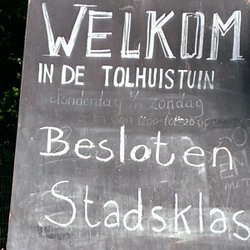 WELKOM
IN DE TOLHUISTUIN
donderdag t/m zondag
Besloten
Stadsklas